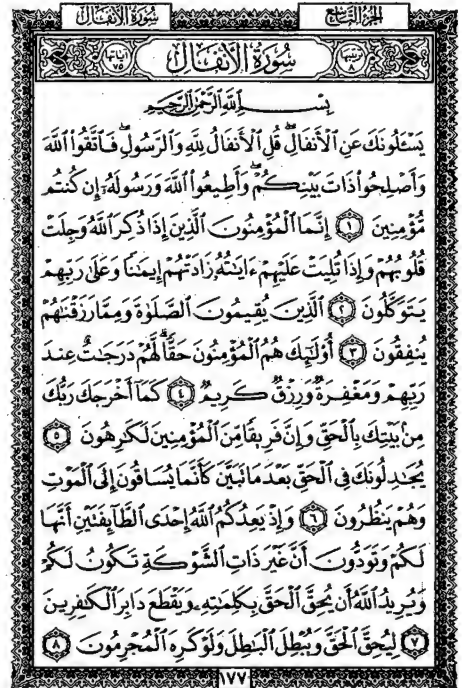 سُورَةُ الأَنفَالِ
الجُزءُ التَّاسِعُ
آيَاتُهَا ٧٥
سُورَةُ الأَنفَالِ
تَرتِيبُهَا ٨
بِسْمِ اللَّهِ الرَّحْمَٰنِ الرَّحِيمِ
يَسْـَٔلُونَكَ عَنِ ٱلْأَنفَالِ ۖ قُلِ ٱلْأَنفَالُ لِلَّهِ وَٱلرَّسُولِ ۖ فَٱتَّقُوا۟ ٱللَّهَ
وَأَصْلِحُوا۟ ذَاتَ بَيْنِكُمْ ۖ وَأَطِيعُوا۟ ٱللَّهَ وَرَسُولَهُۥٓ إِن كُنتُم
مُّؤْمِنِينَ ١ إِنَّمَا ٱلْمُؤْمِنُونَ ٱلَّذِينَ إِذَا ذُكِرَ ٱللَّهُ وَجِلَتْ
قُلُوبُهُمْ وَإِذَا تُلِيَتْ عَلَيْهِمْ ءَايَٰتُهُۥ زَادَتْهُمْ إِيمَٰنًا وَعَلَىٰ رَبِّهِمْ
يَتَوَكَّلُونَ ٢ ٱلَّذِينَ يُقِيمُونَ ٱلصَّلَوٰةَ وَمِمَّا رَزَقْنَٰهُمْ
يُنفِقُونَ ٣ أُو۟لَٰٓئِكَ هُمُ ٱلْمُؤْمِنُونَ حَقًّا ۚ لَّهُمْ دَرَجَٰتٌ عِندَ
رَبِّهِمْ وَمَغْفِرَةٌ وَرِزْقٌ كَرِيمٌ ٤ كَمَآ أَخْرَجَكَ رَبُّكَ
مِنۢ بَيْتِكَ بِٱلْحَقِّ وَإِنَّ فَرِيقًا مِّنَ ٱلْمُؤْمِنِينَ لَكَٰرِهُونَ ٥
يُجَٰدِلُونَكَ فِى ٱلْحَقِّ بَعْدَ مَا تَبَيَّنَ كَأَنَّمَا يُسَاقُونَ إِلَى ٱلْمَوْتِ
وَهُمْ يَنظُرُونَ ٦ وَإِذْ يَعِدُكُمُ ٱللَّهُ إِحْدَى ٱلطَّآئِفَتَيْنِ أَنَّهَا
لَكُمْ وَتَوَدُّونَ أَنَّ غَيْرَ ذَاتِ ٱلشَّوْكَةِ تَكُونُ لَكُمْ
وَيُرِيدُ ٱللَّهُ أَن يُحِقَّ ٱلْحَقَّ بِكَلِمَٰتِهِۦ وَيَقْطَعَ دَابِرَ ٱلْكَٰفِرِينَ
٧ لِيُحِقَّ ٱلْحَقَّ وَيُبْطِلَ ٱلْبَٰطِلَ وَلَوْ كَرِهَ ٱلْمُجْرِمُونَ ٨
١٧٧